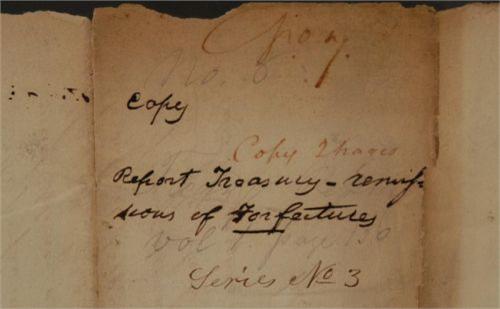 Copy
No. 8
Copy
Copy 2 pages
Report Treasury - remis-
sions of Forfeitures
vol 1 page 130
Series No 3